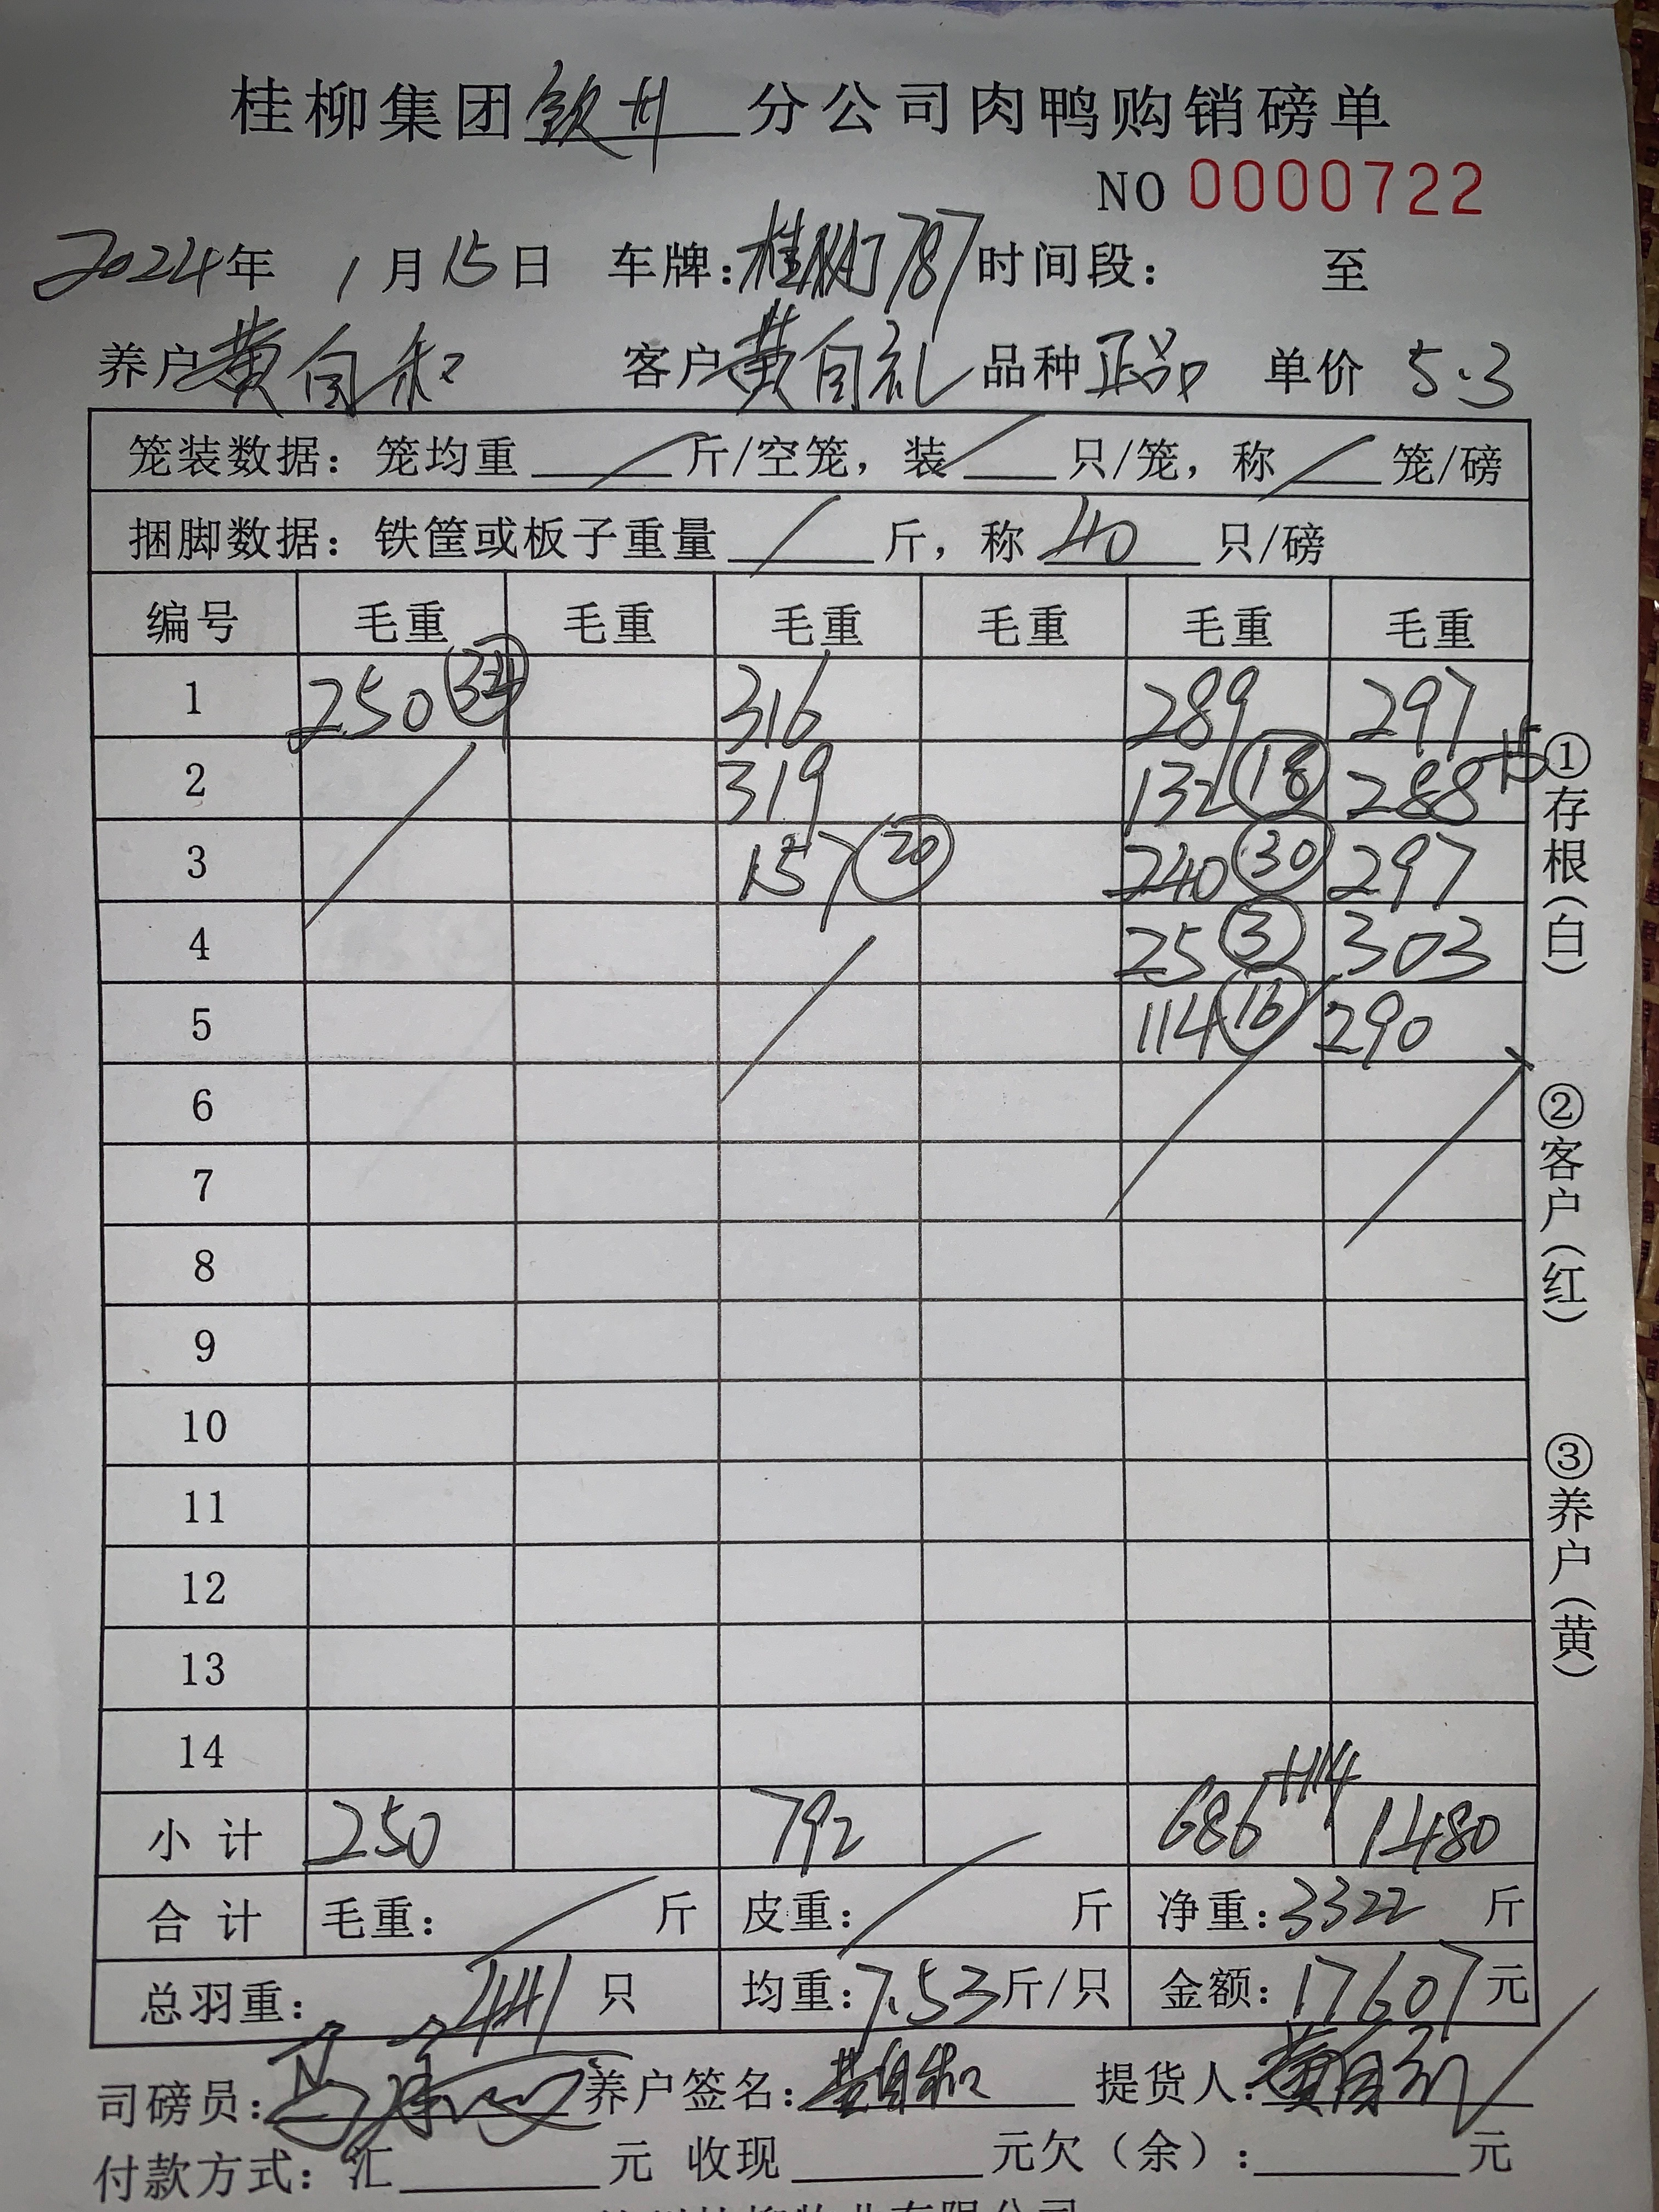 桂柳集团钦州分公司肉鸭购销磅单
NO 0000722
2024年 1月15日 车牌:桂柳787 时间段: 至
养户黄自和 客户黄自礼 品种 正品 单价 5.3
笼装数据: 笼均重 / 斤/空笼, 装 / 只/笼, 称 / 笼/磅
捆脚数据: 铁筐或板子重量 / 斤, 称 40 只/磅
编号 毛重 毛重 毛重 毛重 毛重 毛重
1 250 34 316 289 297
2 319 132 18 288 +15
3 157 20 240 30 297
4 25 3 303
5 114 16 290
6
7
8
9
10
11
12
13
14
小计 250 792 686+114 1480
合计 毛重: / 斤 皮重: / 斤 净重: 3322 斤
总羽重: 441 只 均重: 7.53 斤/只 金额: 17607 元
司磅员: 养户签名: 黄自和 提货人: 黄自礼
付款方式: 汇 元 收现 元欠(余): 元
①存根(白)
②客户(红)
③养户(黄)